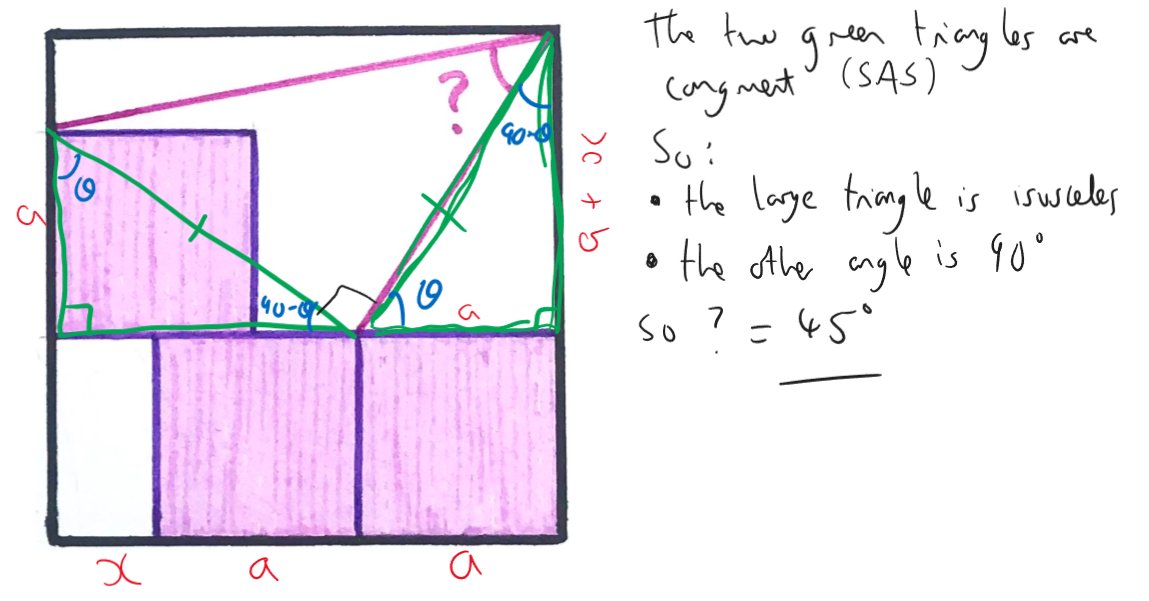 The two green triangles are
congruent (SAS)
So:
• the large triangle is isosceles
• the other angle is 90°
so ? = 45°
?
90-θ
θ
a
x + a
90-θ
θ
a
x
a
a